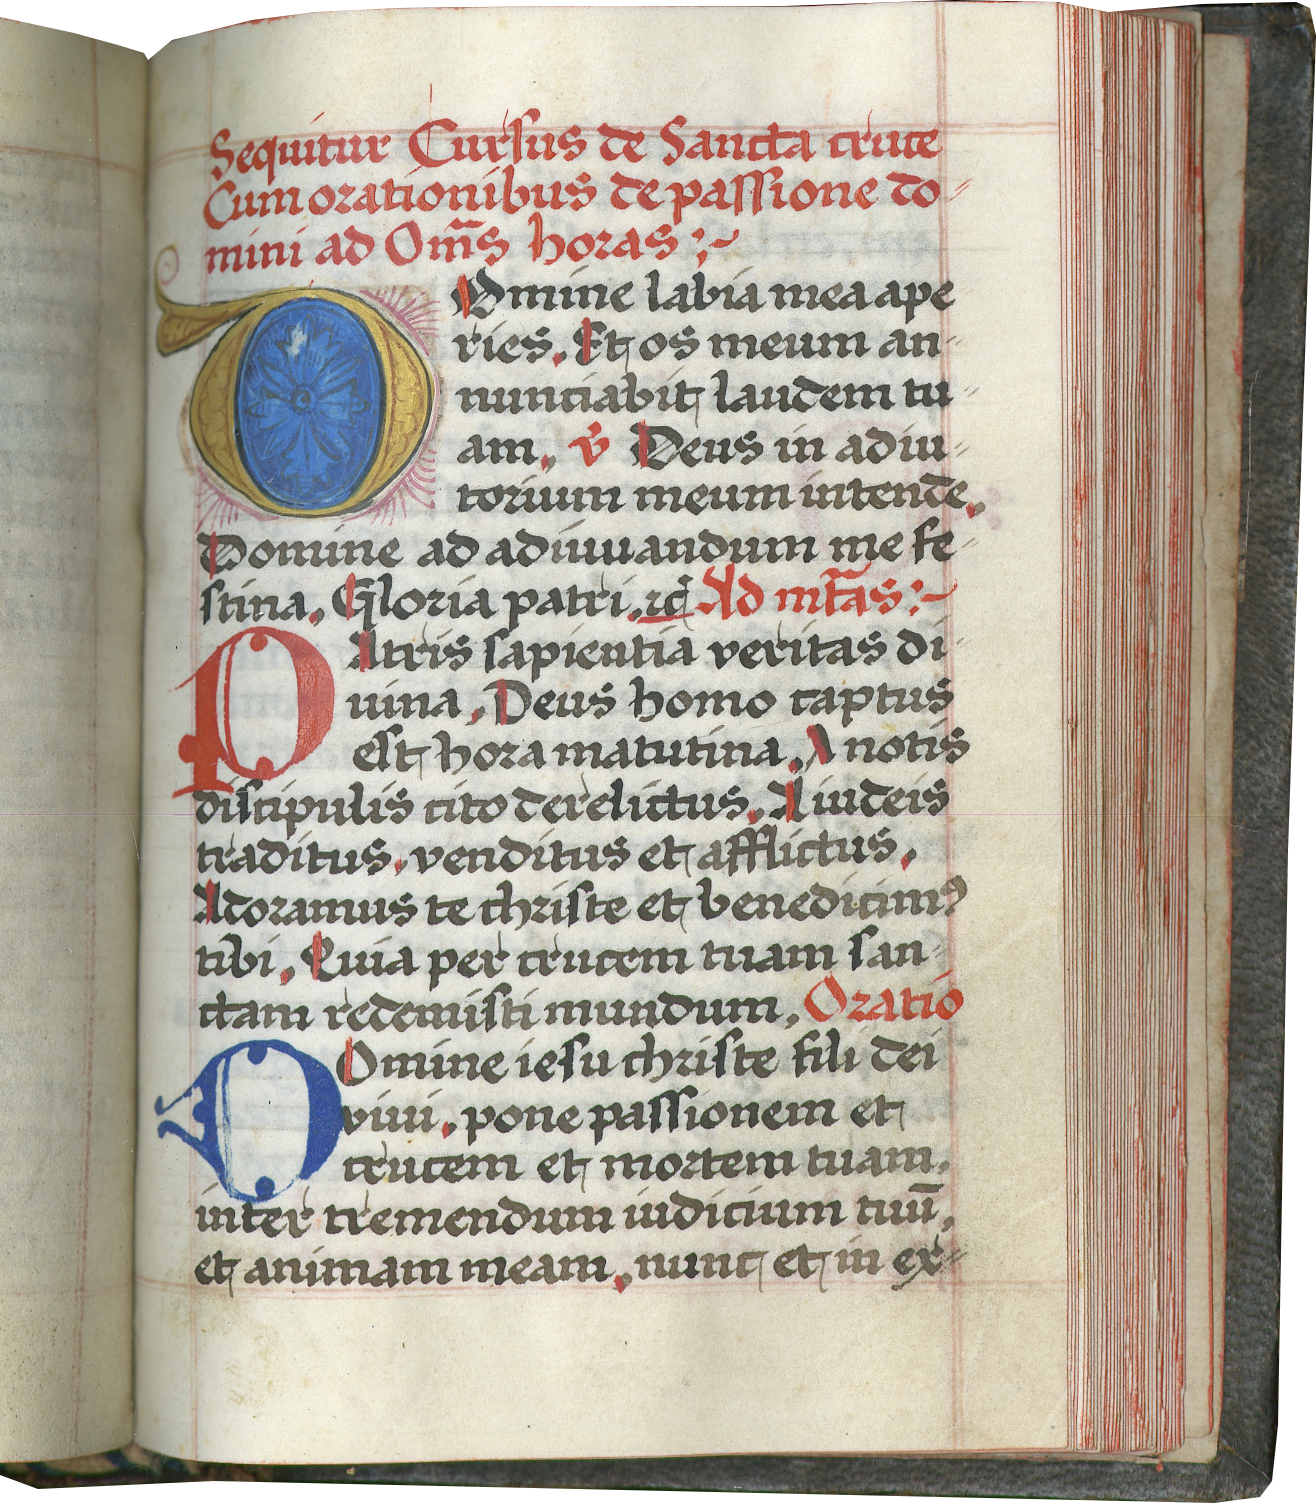 Sequitur Cursus de Sancta cruce
Cum orationibus de passione do-
mini ad Om̄s horas
DOmine labia mea ape
ries. Et os meum an-
nunciabit laudem tu-
am. v̄ Deus in adiu-
torium meum intende.
Domine ad adiuuandum me fe-
stina. Gloria patri. ⁊c̄ Ad mt̄as
PAtris sapientia veritas di-
uina. Deus homo captus
est hora matutina. A notis
discipulis cito derelictus. A iudeis
traditus. venditus et afflictus.
Adoramus te christe et benedicimꝰ
tibi. Quia per crucem tuam san-
ctam redemisti mundum. Oratio
DOmine iesu christe fili dei
viui. pone passionem et
crucem et mortem tuam.
inter tremendum iudicium tuū.
et animam meam. nunc et in ex-